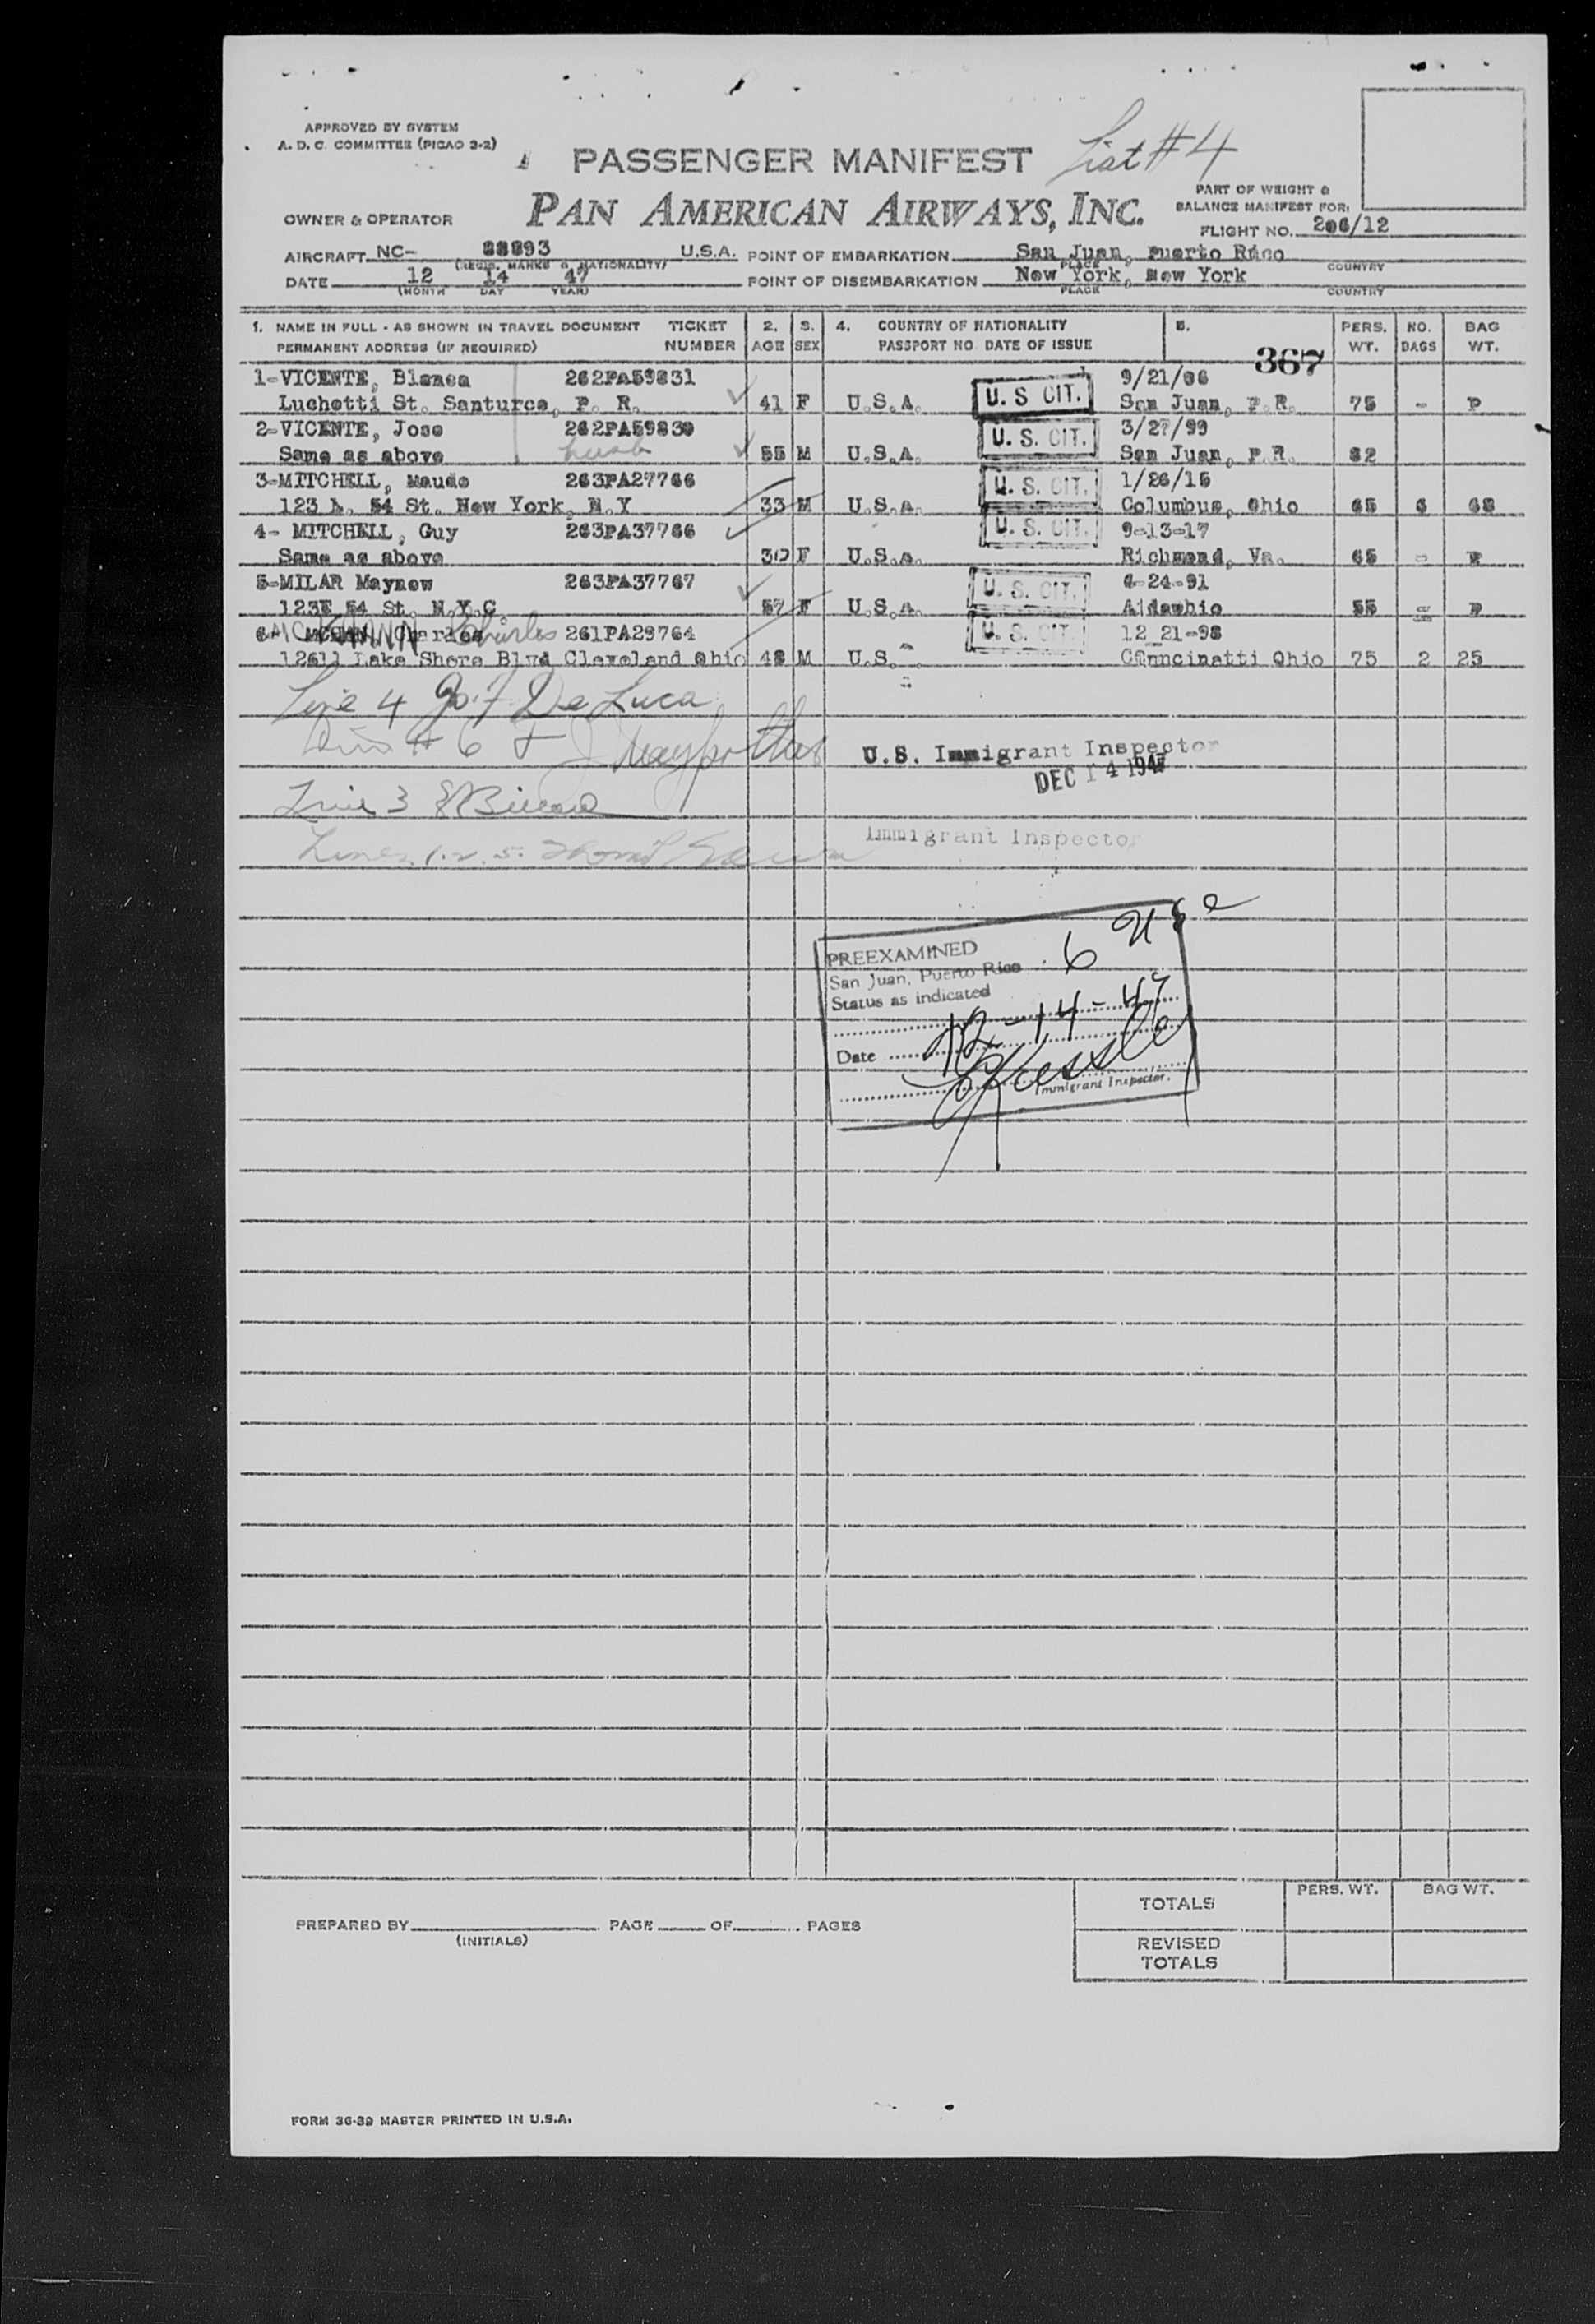 APPROVED BY SYSTEM
A. D. C. COMMITTEE (PICAO 3-2)
PASSENGER MANIFEST List #4
PART OF WEIGHT &
BALANCE MANIFEST FOR:
OWNER & OPERATOR PAN AMERICAN AIRWAYS, INC.
FLIGHT NO. 206/12
AIRCRAFT NC- 88893 U.S.A. POINT OF EMBARKATION San Juan, Puerto Rico
(REGIS. MARKS & NATIONALITY) PLACE COUNTRY
DATE 12 14 47 POINT OF DISEMBARKATION New York, New York
(MONTH DAY YEAR) PLACE COUNTRY
1. NAME IN FULL - AS SHOWN IN TRAVEL DOCUMENT TICKET 2. 3. 4. COUNTRY OF NATIONALITY 5. PERS. NO. BAG
PERMANENT ADDRESS (IF REQUIRED) NUMBER AGE SEX PASSPORT NO. DATE OF ISSUE WT. BAGS WT.
367
1-VICENTE, Blanca 262PA59831 9/21/06
Luchetti St. Santurce, P. R. 41 F U.S.A. U. S CIT. San Juan, P.R. 75 - P
2-VICENTE, Jose 262PA59830 3/27/99
Same as above husb 55 M U.S.A. U. S. CIT. San Juan, P.R. 82
3-MITCHELL, Maude 263PA27766 1/26/15
123 54 St. New York, N.Y 33 M U.S.A. U. S. CIT. Columbus, Ohio 65 6 68
4- MITCHELL, Guy 263PA37766 9-13-17
Same as above 30 F U.S.A. U. S. CIT. Richmond, Va. 65 - P
5-MILAR Maynew 263PA37767 4-24-91
123E 54 St. N.Y.C 57 F U.S.A. U. S. CIT. 55 - P
6- Charles Charles 261PA29764 12 21-98
12611 Lake Shore Blvd Cleveland Ohio 48 M U.S. U. S. CIT. Cinncinatti Ohio 75 2 25
Line 4 De Luca
6
U.S. Immigrant Inspector
DEC 14 1947
Line 3
Immigrant Inspector
Lines 1. 2. 5.
PREEXAMINED 6 USC
San Juan, Puerto Rico
Status as indicated
Date 12-14-47
Kessler
Immigrant Inspector.
TOTALS PERS. WT. BAG WT.
PREPARED BY PAGE OF PAGES
(INITIALS)
REVISED
TOTALS
FORM 36-39 MASTER PRINTED IN U.S.A.